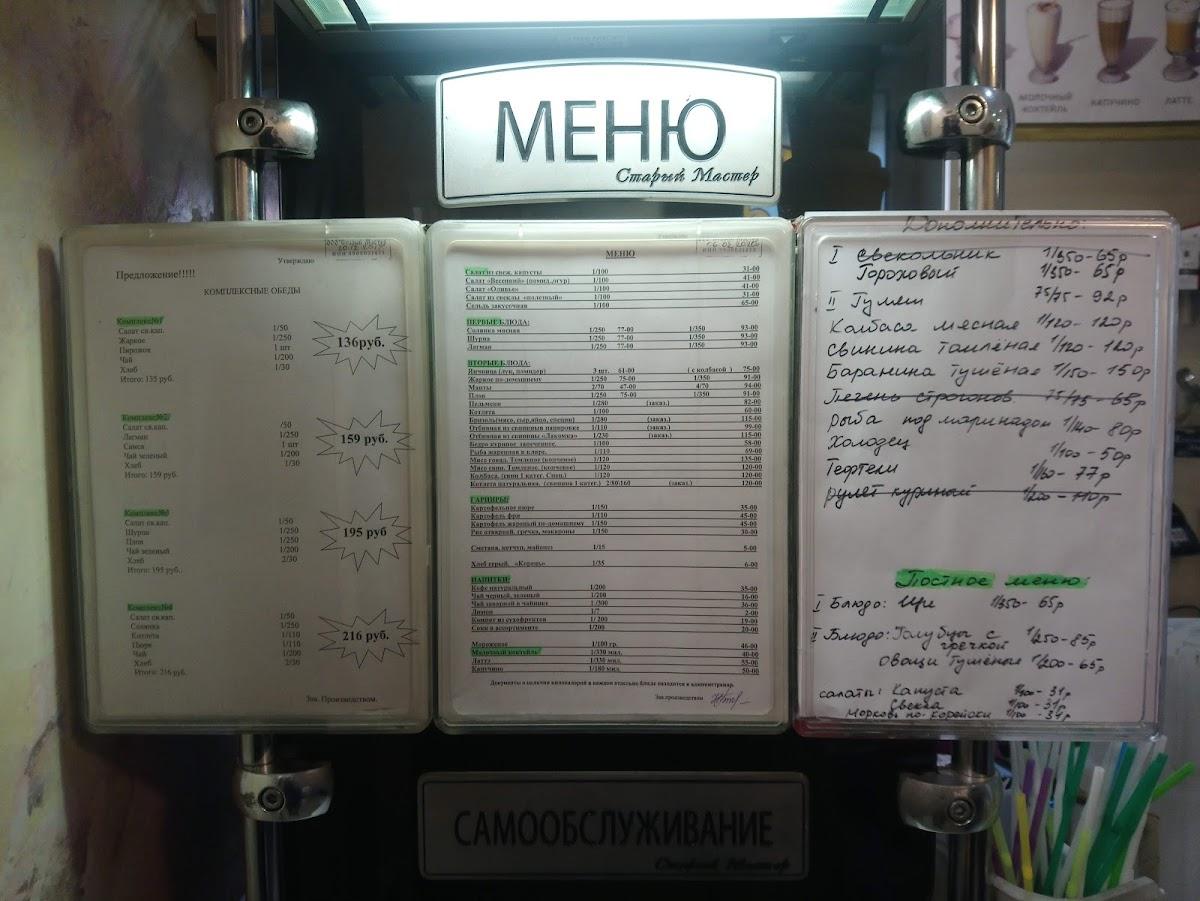 МОЛОЧНЫЙ
КОКТЕЙЛЬ
КАПУЧИНО
ЛАТТЕ
МЕНЮ
Старый Мастер
Утверждаю
Предложение!!!!!
КОМПЛЕКСНЫЕ ОБЕДЫ
Комплекс№1
Салат св.кап. 1/50
Жаркое 1/250
Пирожок 1 шт
Чай 1/200
Хлеб 1/30
Итого: 135 руб.
136руб.
Комплекс№2
Салат св.кап. /50
Лагман 1/250
Самса 1 шт
Чай зеленый 1/200
Хлеб 1/30
Итого: 159 руб.
159 руб.
Комплекс№3
Салат св.кап. 1/50
Шурпа 1/250
Плов 1/250
Чай зеленый 1/200
Хлеб 2/30
Итого: 195 руб.
195 руб
Комплекс№4
Салат св.кап. 1/50
Солянка 1/250
Котлета 1/110
Пюре 1/110
Чай 1/200
Хлеб 2/30
Итого: 216 руб.
216 руб.
Зав. Производством.
МЕНЮ
Салат из свеж. капусты 1/100 31-00
Салат «Весенний» (помид./огур) 1/100 41-00
Салат «Оливье» 1/100 41-00
Салат из свеклы «полезный» 1/100 31-00
Сельдь закусочная 1/100 65-00
ПЕРВЫЕ БЛЮДА:
Солянка мясная 1/250 77-00 1/350 93-00
Шурпа 1/250 77-00 1/350 93-00
Лагман 1/250 77-00 1/350 93-00
ВТОРЫЕ БЛЮДА:
Яичница (лук, помидор) 3 шт. 61-00 ( с колбасой ) 75-00
Жаркое по-домашнему 1/250 75-00 1/350 91-00
Манты 2/70 47-00 4/70 94-00
Плов 1/250 75-00 1/350 91-00
Пельмени 1/280 (заказ.) 82-00
Котлета 1/100 60-00
Бризоль(мясо, сыр,яйцо, специи) 1/280 (заказ.) 115-00
Отбивная из свинины панировке 1/110 (заказ.) 99-00
Отбивная из свинины «Лакомка» 1/230 (заказ.) 115-00
Бедро куриное запеченное. 1/100 58-00
Рыба жаренная в кляре. 1/110 69-00
Мясо говяд. Томленое (копченое) 1/120 135-00
Мясо свин. Томленое. (копченое) 1/120 120-00
Колбаса. (свин 1 катег. Спец.) 1/120 120-00
Котлета натуральная. (свинина 1 катег.) 2/80\160 (заказ.) 120-00
ГАРНИРЫ:
Картофельное пюре 1/150 35-00
Картофель фри 1/110 45-00
Картофель жареный по-домашнему 1/150 45-00
Рис отварной, гречка, макароны 1/150 30-00
Сметана, кетчуп, майонез 1/15 5-00
Хлеб серый. «Корень» 1/35 6-00
НАПИТКИ:
Кофе натуральный 1/200 35-00
Чай черный, зеленый 1/200 16-00
Чай заварной в чайнике 1 /300 36-00
Лимон 1/7 2-00
Компот из сухофруктов 1/ 200 19-00
Соки в ассортименте 1/200 20-00
Мороженое 1/100 гр. 46-00
Молочный коктейль 1/330 мил. 40-00
Латтэ 1/330 мил. 55-00
Капучино 1/180 мил. 50-00
Документы о наличии килокалорий в каждом отдельно блюде находятся у администратора.
Зав.производством
Дополнительно:
I Свекольник 1/350-65р
Гороховый 1/350- 65р
II Гуляш 75/75 - 92р
Колбаса мясная 1/120- 120р
Свинина томлёная 1/120- 120р
Баранина тушёная 1/150- 150р
Печень строгонов 75/75- 65р
Рыба под маринадом 1/140- 80р
Холодец 1/100 - 50р
Тефтели 1/160 - 77р
рулет куриный 1/200 - 110р
Постное меню:
I Блюдо: Щи 1/350- 65р
II Блюдо: Голубцы с 1/250-85р
гречкой
Овощи тушёные 1/200-65р
салаты: Капуста 1/100 - 31р
Свекла 1/100 - 31р
Морковь по-корейски 1/100 - 34р
САМООБСЛУЖИВАНИЕ
Старый Мастер